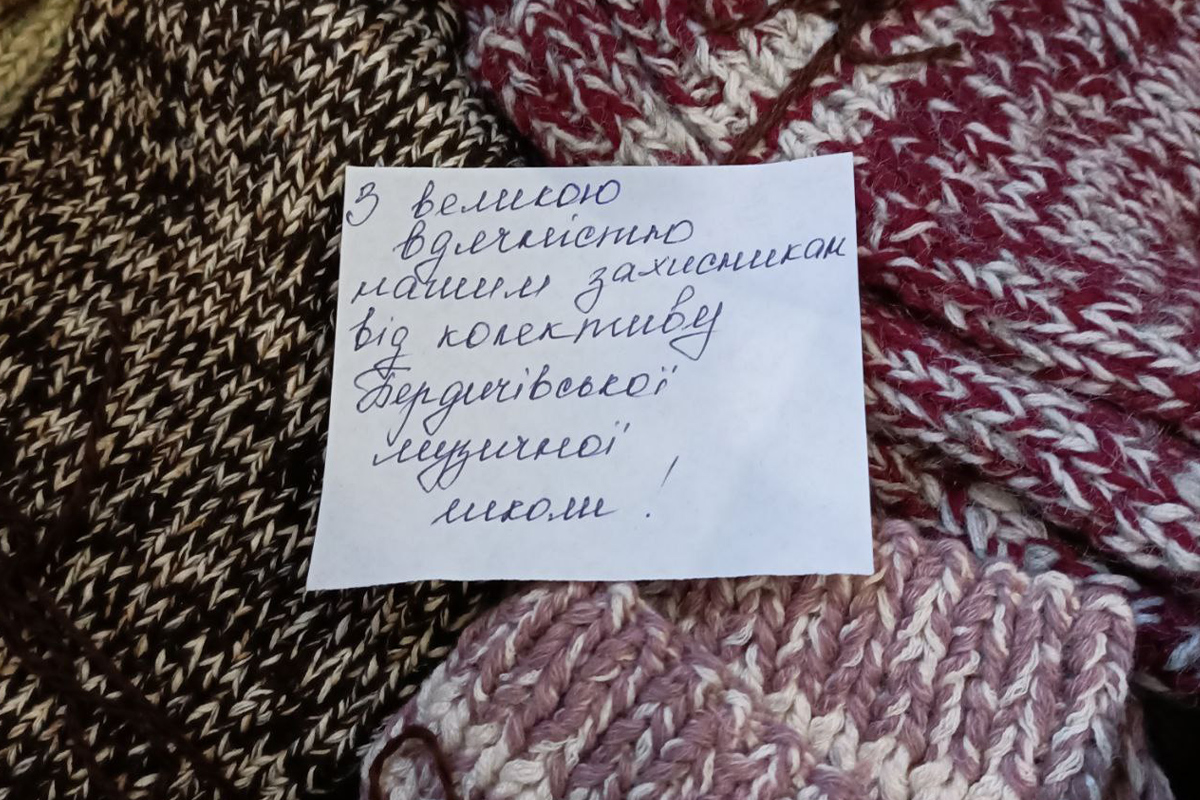 З великою
вдячністю
нашим захисникам
від колективу
Бердичівської
музичної
школи!